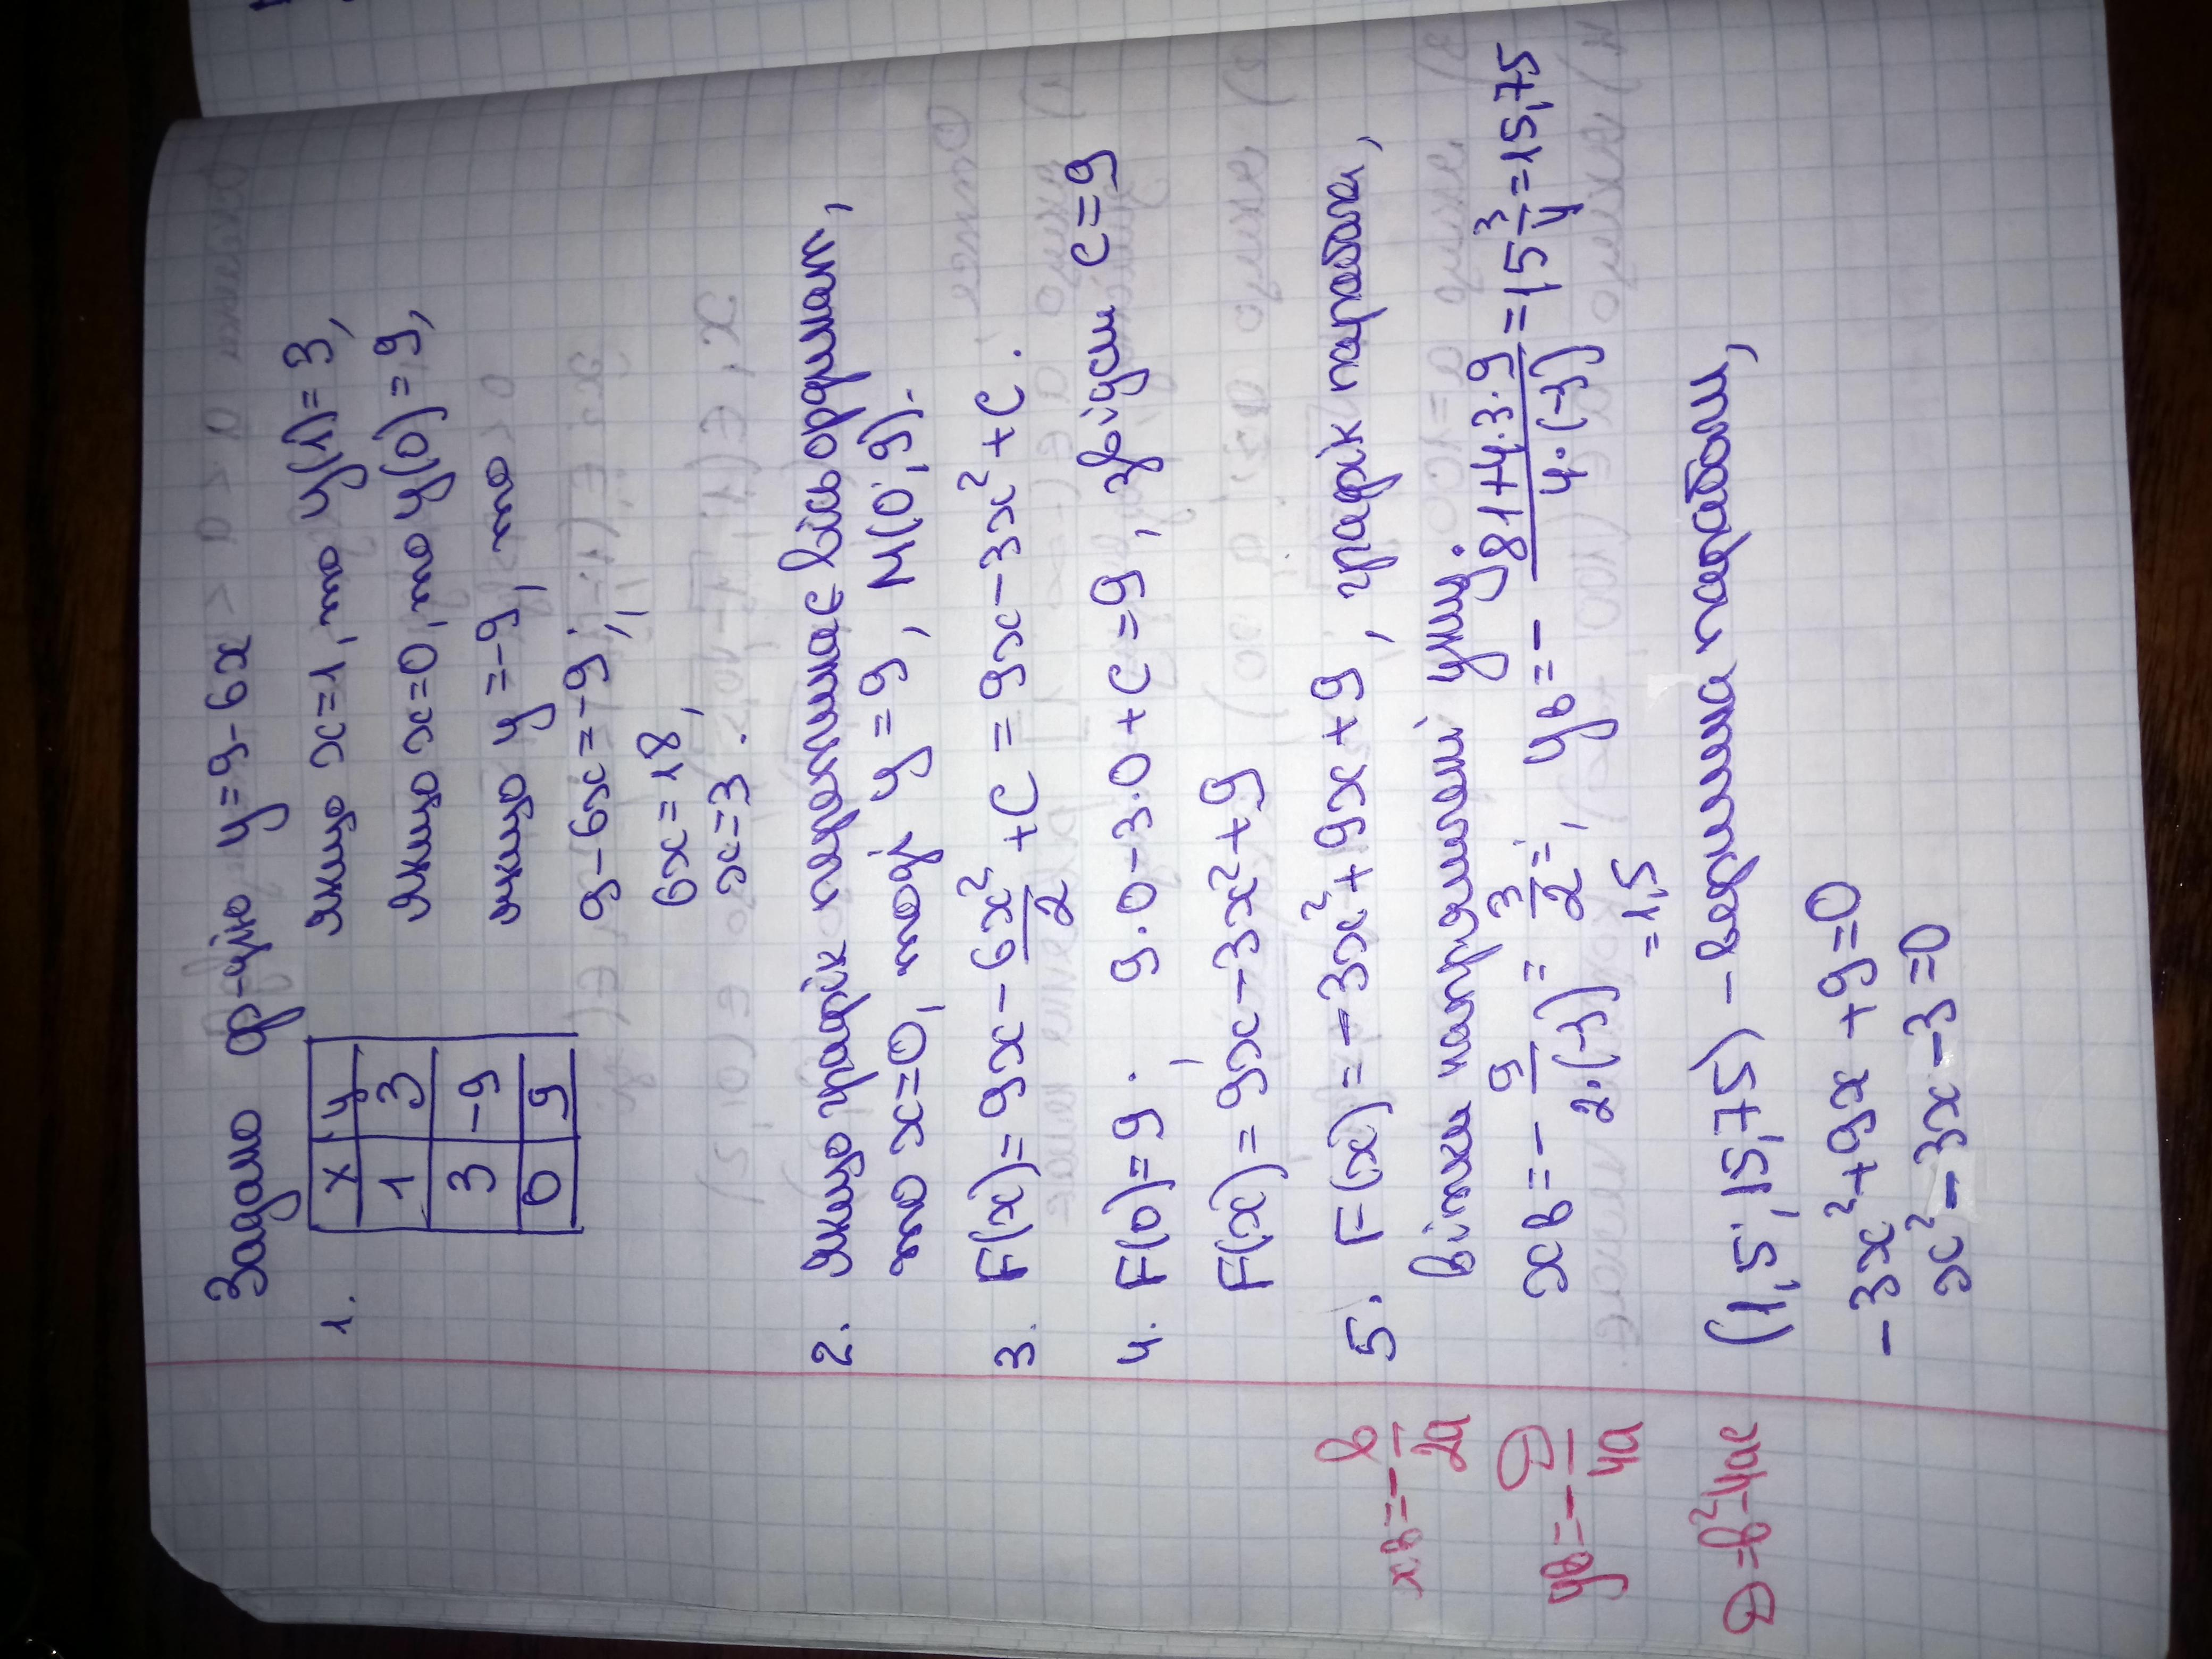 Задано ф-цію y=9-6x
1.
x y
1 3
3 -9
0 9
якщо x=1, то y(1)=3,
якщо x=0, то y(0)=9,
якщо y=-9, то
9-6x=-9;
6x=18,
x=3.
2. якщо графік перетинає вісь ординат,
то x=0, тоді y=9, M(0;9).
3. F(x)=9x-6x²/2+C=9x-3x²+C.
4. F(0)=9. 9·0-3·0+C=9, звідси C=9
F(x)=9x-3x²+9
5. F(x)=-3x²+9x+9, графік парабола,
вітки напрямлені униз.
xв=-9/2·(-3)=3/2=1,5; yв=-81+4·3·9/4·(-3)=15 3/4=15,75
(1,5;15,75)-вершина параболи,
-3x²+9x+9=0
x²-3x-3=0
xв=-в/2a
yв=-D/4a
D=в²-4ac